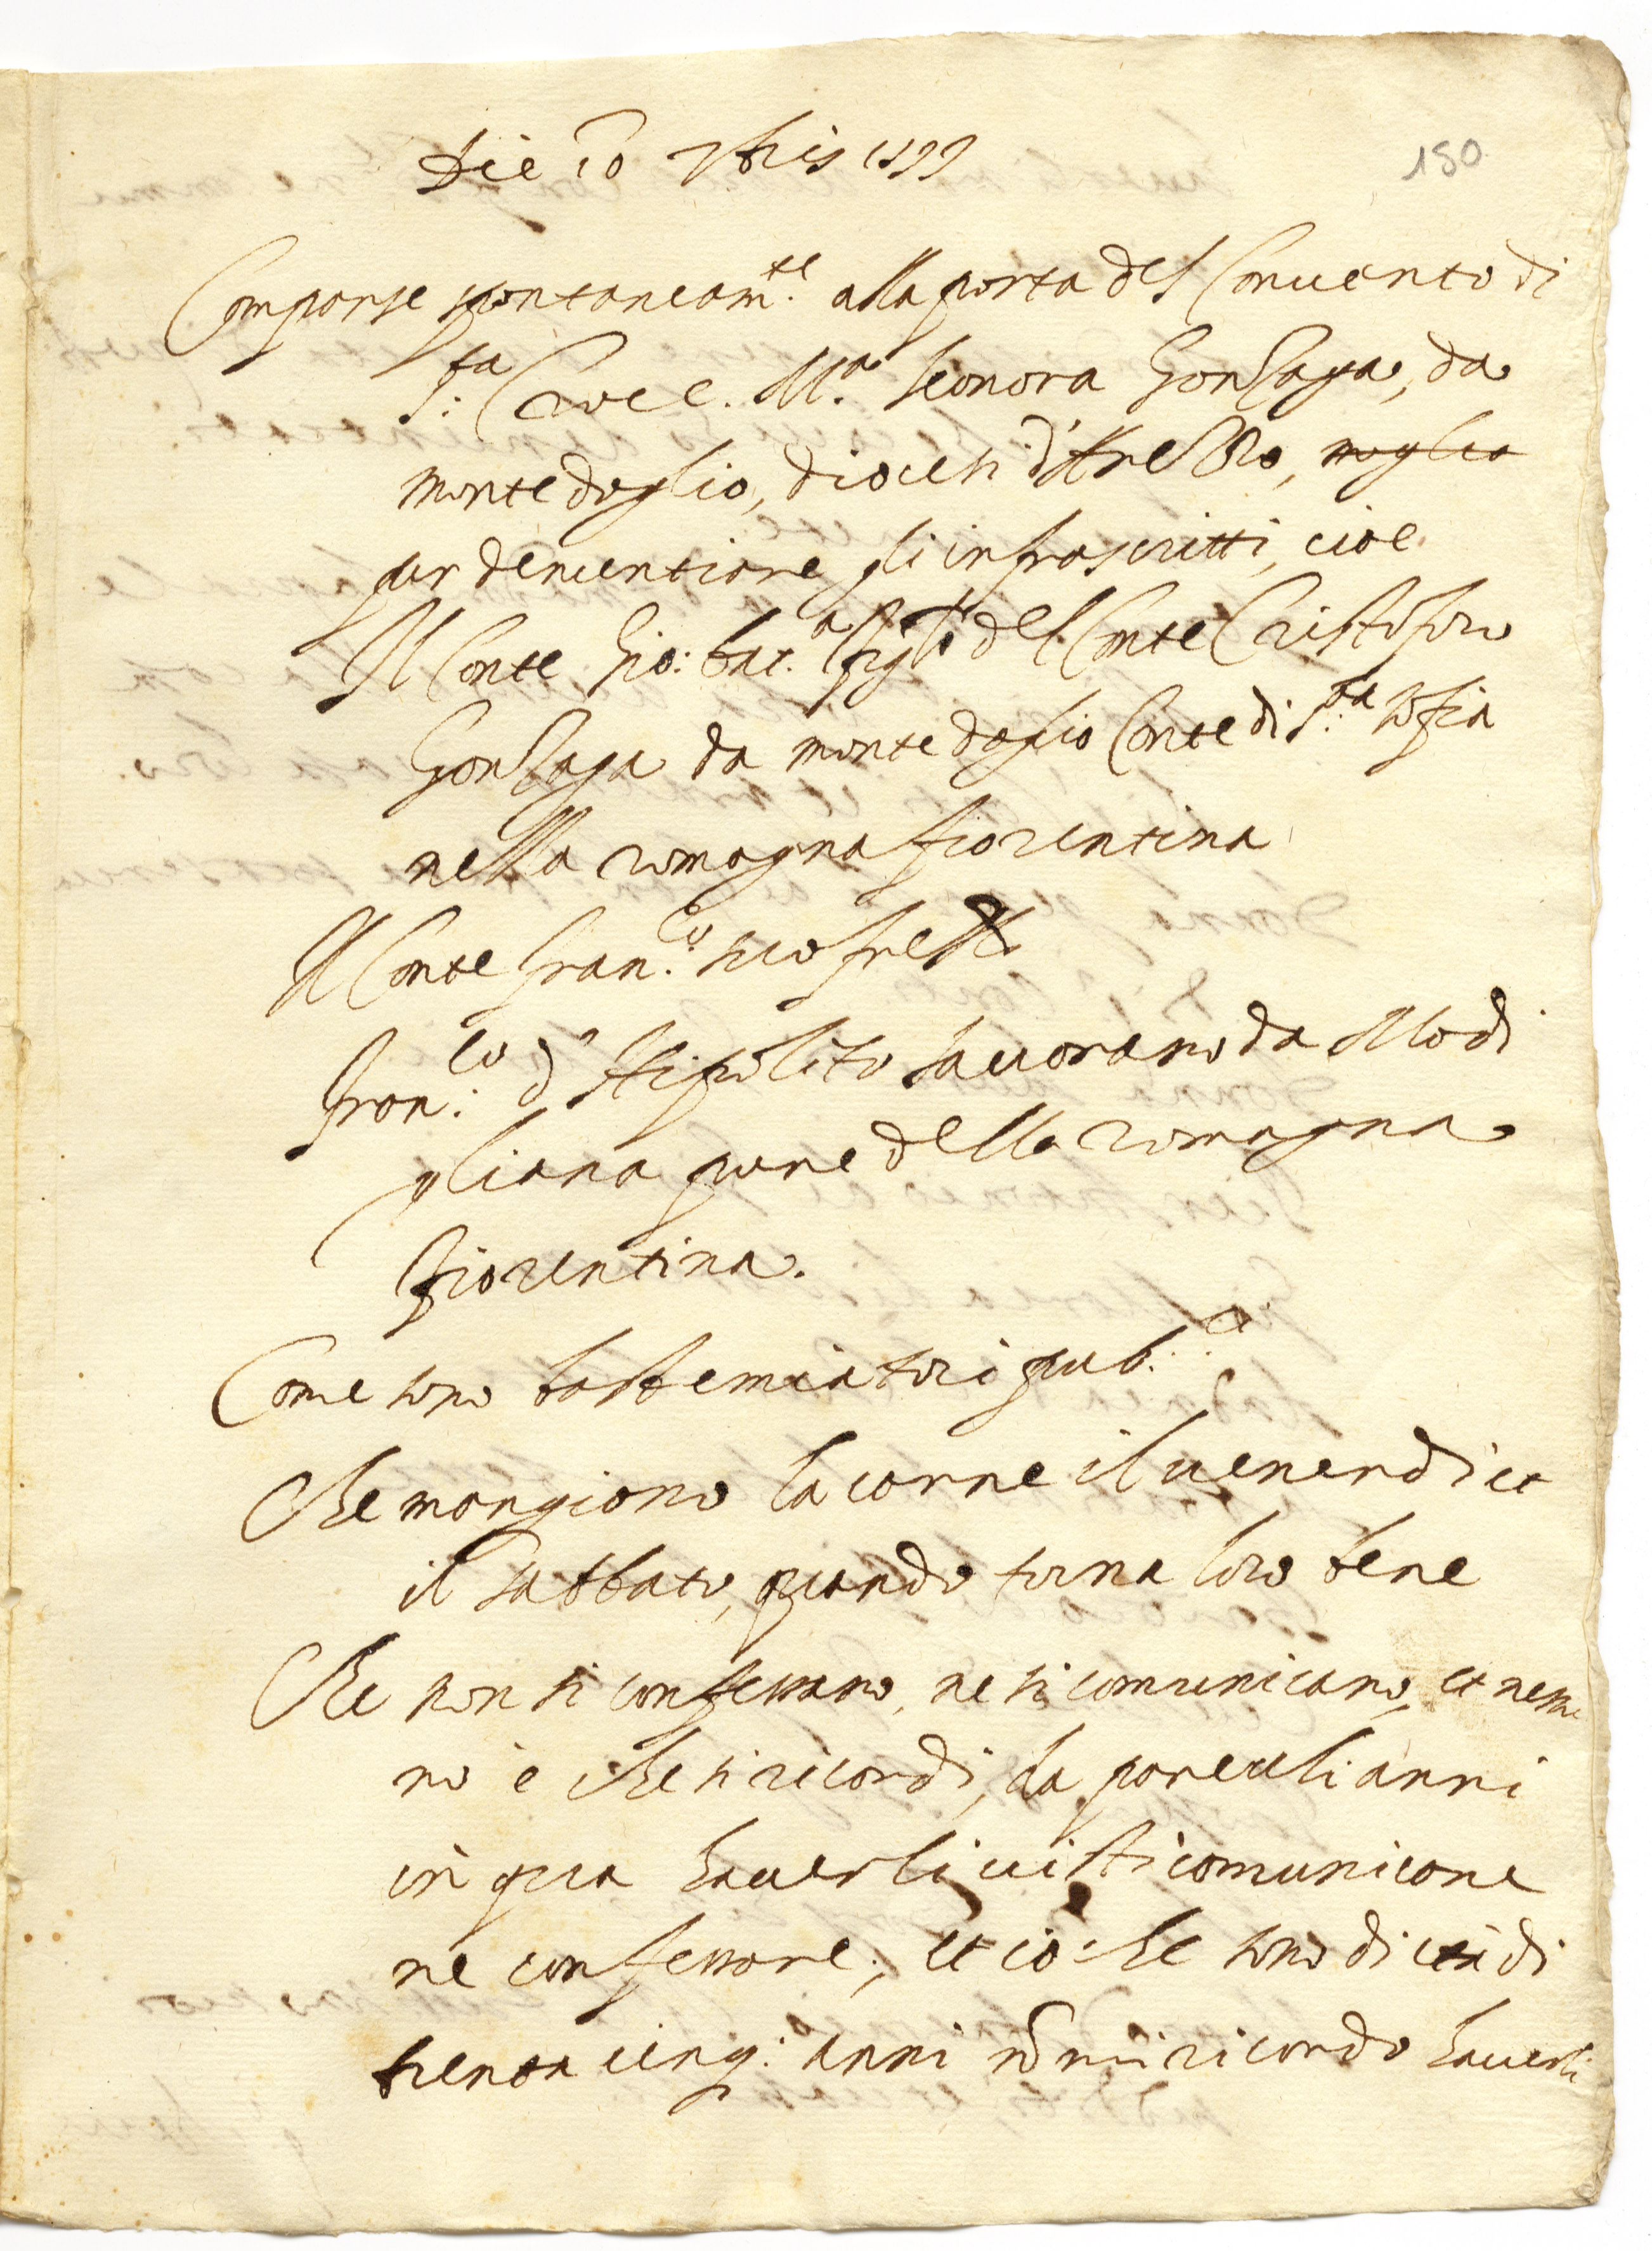 Die 10 7bris 1599
150
Comparse spontaneam.te alla porta del Convento di
S.ta Croce. M.a Leonora Gonzaga, da
monte doglio, diocesi d'Arezzo, moglie
per denuntiare gli infrascritti, cioe
Il Conte Gio: bat.a figl.o del Conte Cristoforo
Gonzaga da monte doglio Conte di S.ta Sofia
nella romagna fiorentina
Il Conte Fran.co suo fre'llo
Fran.co d'Hipolito Savorano da Modi
gliana pure della romagna
fiorentina.
Come sono bastemiatori pub.ci
Che mangiono la carne il venerdi et
il sabbato, quando torna loro bene
Che non si confessano, ne si comunicano, et nessu
no è che si ricordi, da parechi anni
in qua haverli visti comunicare
ne confessare, et io che sono di età di
trenta cinq: anni nõ mi ricordo haverli